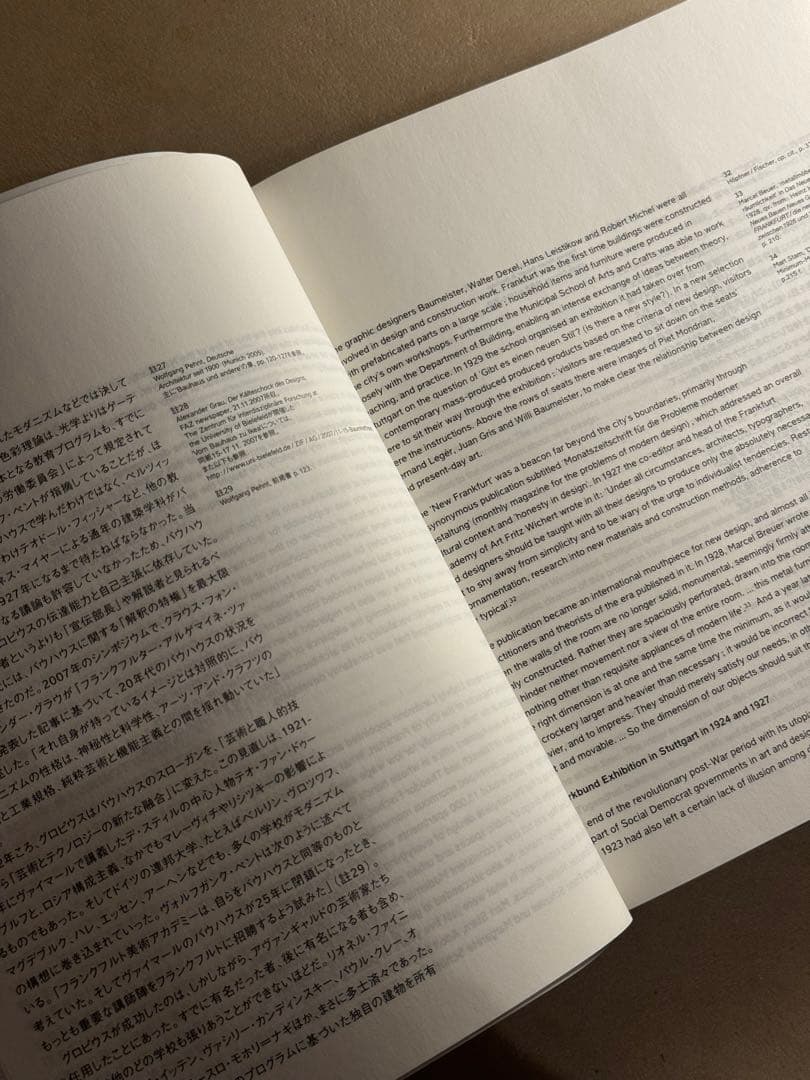 註27
Wolfgang Pehnt, Deutsche
Architektur seit 1900 (Munich 2005),
註28
Alexander Grau, Der Kälteschock des Designs,
FAZ newspaper, 21.11.2007所収。
the University of Bielefeldが開催した
'Vom Bauhaus zu Ikea'については、
会議15-17 11. 2007を参照。
また以下も参照
註29
Wolfgang Pehnt, 前掲書 p. 123.
したモダニズムなどでは決して
色彩理論は、光学よりはゲーテ
本となる教育プログラムも、すでに
労働委員会」によって規定されて
ク・ペントが指摘していることだが、ほ
ハウスで学んだわけではなく、ペルツィッ
わけテオドール・フィッシャーなど、他の数
ネス・マイヤーによる通年の建築学科がバ
927年になるまで待たねばならなかった。当
なる議論も許容していなかったため、バウハウ
ロピウスの伝達能力と自己主張に依存していた。
者というよりも「宣伝部長」や解説者と見られるべ
には、バウハウスに関する「解釈の特権」を最大限
きたのだ。2007年のシンポジウムで、クラウス・フォン・
ンダー・グラウが「フランクフルター・アルゲマイネ・ツァ
発表した記事に基づいて、20年代のバウハウスの状況を
した。「それ自身が持っているイメージとは対照的に、バウ
ニズムの性格は、神秘性と科学性、アーツ・アンド・クラフツの
と工業規格、純粋芸術と機能主義との間を揺れ動いていた」
2年ころ、グロピウスはバウハウスのスローガンを、「芸術と職人的技
ら「芸術とテクノロジーの新たな融合」に変えた。この見直しは、1921-
年にヴァイマールで講義したデ・ステイルの中心人物テオ・ファン・ドゥー
ブルフと、ロシア構成主義、なかでもマレーヴィチやリシツキーの影響によ
るものでもあった。そしてドイツの連邦大学、たとえばベルリン、ヴロツワフ、
マグデブルク、ハレ、エッセン、アーヘンなどでも、多くの学校がモダニズム
の構想に巻き込まれていった。ヴォルフガンク・ペントは次のように述べて
いる。「フランクフルト美術アカデミーは、自らをバウハウスと同等のものと
考えていた。そしてヴァイマールのバウハウスが25年に閉鎖になったとき、
もっとも重要な講師陣をフランクフルトに招聘するよう試みた」(註29)。
グロピウスが成功したのは、しかしながら、アヴァンギャルドの芸術家たち
任用したことにあった。すでに有名だった者、後に有名になる者も含め、
他のどの学校も張りあうことができないほどだ。リオネル・ファイニ
イッテン、ヴァシリー・カンディンスキー、パウル・クレー、オ
ースロ・モホリ=ナギほか、まさに多士済々であった。
プログラムに基づいた独自の建物を所有
he graphic designers Baumeister, Walter Dexel, Hans Leistikow and Robert Michel were all
volved in design and construction work. Frankfurt was the first time buildings were constructed
th prefabricated parts on a large scale ; household items and furniture were produced in
he city's own workshops. Furthermore the Municipal School of Arts and Crafts was able to work
osely with the Department of Building, enabling an intense exchange of ideas between theory,
aching, and practice. In 1929 the school organised an exhibition it had taken over from
uttgart on the question of 'Gibt es einen neuen Stil'? (Is there a new style?). In a new selection
contemporary mass-produced products based on the criteria of new design, visitors
ere to sit their way through the exhibition : 'visitors are requested to sit down on the seats'
re the instructions. Above the rows of seats there were images of Piet Mondrian,
rnand Legér, Juan Gris and Willi Baumeister, to make clear the relationship between design
d present-day art.
he 'New Frankfurt' was a beacon far beyond the city's boundaries, primarily through
synonymous publication subtitled 'Monatszeitschrift für die Probleme moderner
estaltung (monthly magazine for the problems of modern design)', which addressed an overall
ltural context and 'honesty in design'. In 1927 the co-editor and head of the Frankfurt
ademy of Art Fritz Wichert wrote in it : 'Under all circumstances, architects, typographers,
d designers should be taught with all their designs to produce only the absolutely necessary
t to shy away from simplicity and to be wary of the urge to individualist tendencies. Resist
ornamentation, research into new materials and construction methods, adherence to
typical'.32
e publication became an international mouthpiece for new design, and almost all
ctitioners and theorists of the era published in it. In 1928, Marcel Breuer wrote
n the walls of the room are no longer solid, monumental, seemingly firmly as
ly constructed. Rather they are spaciously perforated, drawn into the room
hinder neither movement nor a view of the entire room. ... this metal furn
nothing other than requisite appliances of modern life'.33 And a year la
right dimension is at one and the same time the minimum, as it wou
crockery larger and heavier than necessary ; it would be incorrect
vier, and to impress. They should merely satisfy our needs, in ou
t and movable. ... So the dimension of our objects should suit th
rkbund Exhibition in Stuttgart in 1924 and 1927
end of the revolutionary post-War period with its utop
part of Social Democrat governments in art and desig
1923 had also left a certain lack of illusion among d
32
Höpfner / Fischer, op. cit., p. 3
33
34